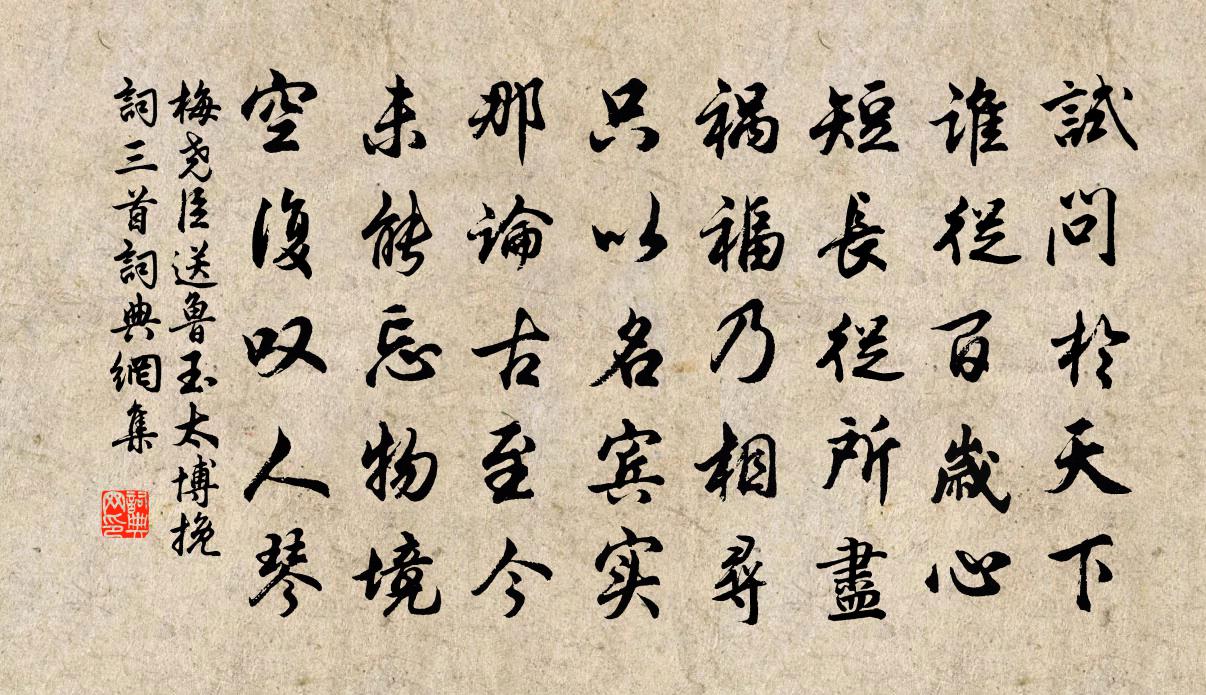 試問於天下
誰從百歲心
短長從所盡
禍福乃相尋
只以名宾实
那論古至今
未能忘物境
空復叹人琴
梅尧臣送魯玉太博挽
詞三首詞典網集
詞典
网印